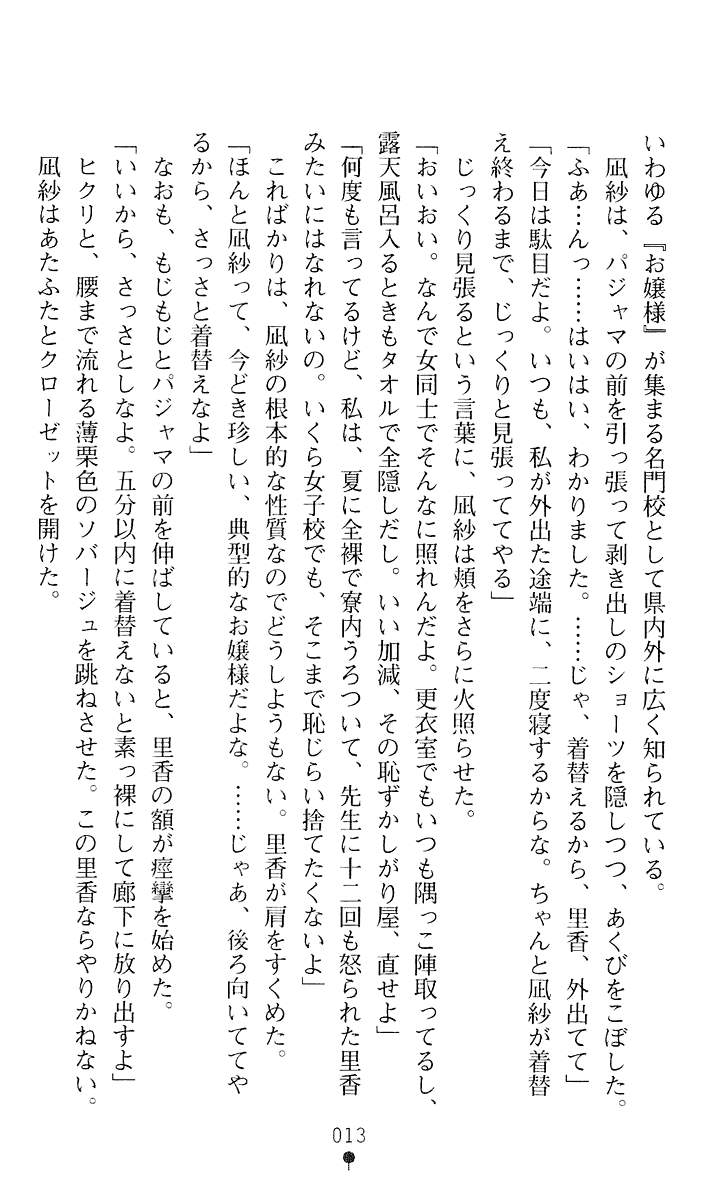 いわゆる『お嬢様』が集まる名門校として県内外に広く知られている。
　凪紗は、パジャマの前を引っ張って剥き出しのショーツを隠しつつ、あくびをこぼした。
「ふぁ…んっ……はいはい、わかりました。……じゃ、着替えるから、里香、外出てて」
「今日は駄目だよ。いつも、私が外出た途端に、二度寝するからな。ちゃんと凪紗が着替
え終わるまで、じっくりと見張っててやる」
　じっくり見張るという言葉に、凪紗は頬をさらに火照らせた。
「おいおい。なんで女同士でそんなに照れんだよ。更衣室でもいつも隅っこ陣取ってるし、
露天風呂入るときもタオルで全隠しだし。いい加減、その恥ずかしがり屋、直せよ」
「何度も言ってるけど、私は、夏に全裸で寮内うろついて、先生に十二回も怒られた里香
みたいにはなれないの。いくら女子校でも、そこまで恥じらい捨てたくないよ」
　こればかりは、凪紗の根本的な性質なのでどうしようもない。里香が肩をすくめた。
「ほんと凪紗って、今どき珍しい、典型的なお嬢様だよな。……じゃあ、後ろ向いててや
るから、さっさと着替えなよ」
　なおも、もじもじとパジャマの前を伸ばしていると、里香の額が痙攣を始めた。
「いいから、さっさとしなよ。五分以内に着替えないと素っ裸にして廊下に放り出すよ」
　ヒクリと、腰まで流れる薄栗色のソバージュを跳ねさせた。この里香ならやりかねない。
凪紗はあたふたとクローゼットを開けた。
013